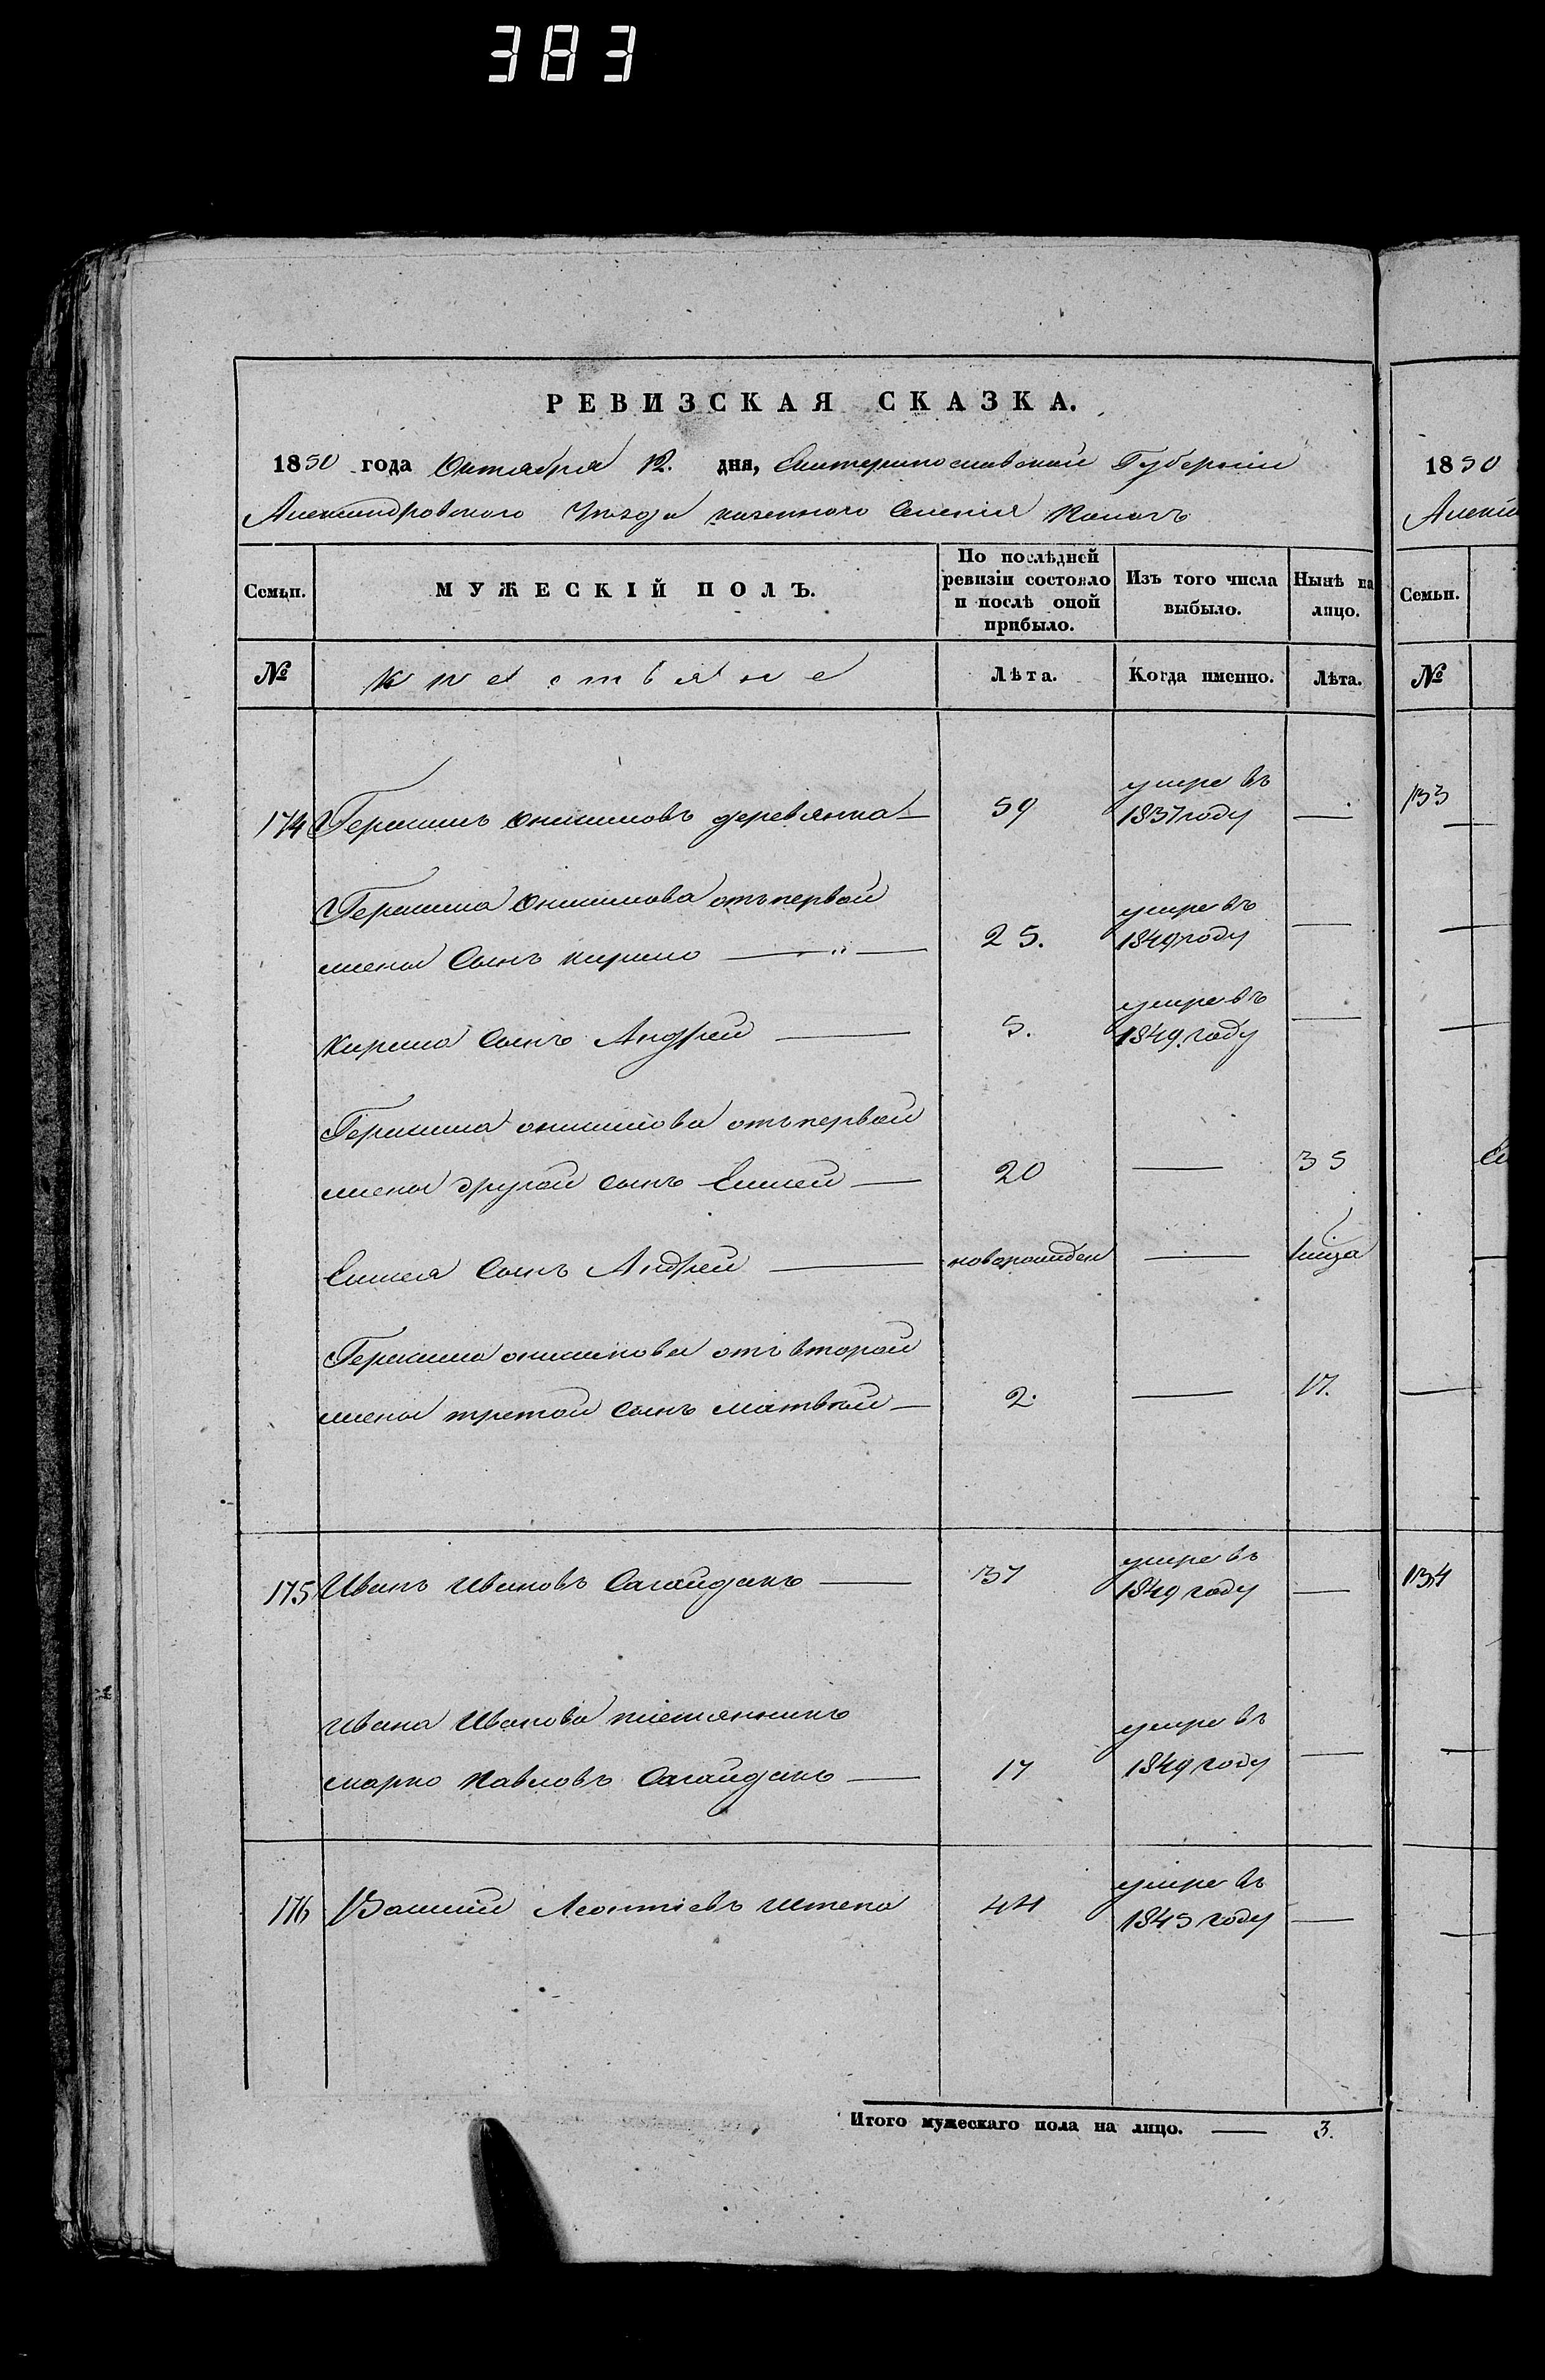 383
РЕВИЗСКАЯ СКАЗКА.
1850 года Октября 12. дня, Екатеринославской Губерніи
Александровского Уѣзда казенного Селенія Каменъ
Семьи. МУЖЕСКІЙ ПОЛЪ. По послѣдней ревизіи состояло и послѣ оной прибыло. Изъ того числа выбыло. Нынѣ на лицо.
№ Крестьяне Лѣта. Когда именно. Лѣта.
174 Герасимъ Онисимовъ деревянка 59 умре въ 1837 году —
Герасима Онисимова отъ первой
жены Сынъ Кирило 25. умре въ 1849 году —
Кирила Сынъ Андрей 5. умре въ 1849. году —
Герасима онисимова отъ первой
жены другой сынъ Елисей 20 — 35
Елисея Сынъ Андрей новорожден —
Герасима онисимова отъ второй
жены третой сынъ матвѣй 2. — 17.
175 Иванъ Ивановъ Сагайдакъ 37 умре въ 1849 году —
Ивана Иванова племянникъ
марко Павловъ Сагайдакъ 17 умре въ 1849 году —
176 Василій Леонтіевъ Штепа 44 умре въ 1845 году —
Итого мужескаго пола на лицо. — 3.
1850
Семьи.
№
133
134